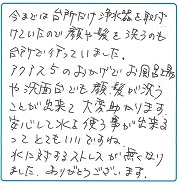 今までは台所だけ浄水器を取付
けていたので顔や髪を洗うのも
台所で行っていました。
アクナス5のおかげでお風呂場
や洗面台でも顔、髪が洗う
ことが出来て大変助かります。
安心して水を使う事が出来る
ってとてもいいですね。
水に対するストレスが無くなり
ました。ありがとうございます。